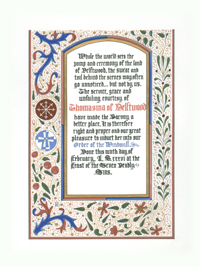 While the world sees the
pomp and ceremony of the land
of Delftwood, the sweat and
toil behind the scenes may often
go unnoticed... but not by us.
The service, grace and
unfailing courtesy of
Thomasina of Delftwood
have made the Barony a
better place. It is therefore
right and proper and our great
pleasure to induct her into our
Order of the Windmill.
Done this ninth day of
February, A.S. xxxvi at the
Feast of the Seven Deadly
Sins.